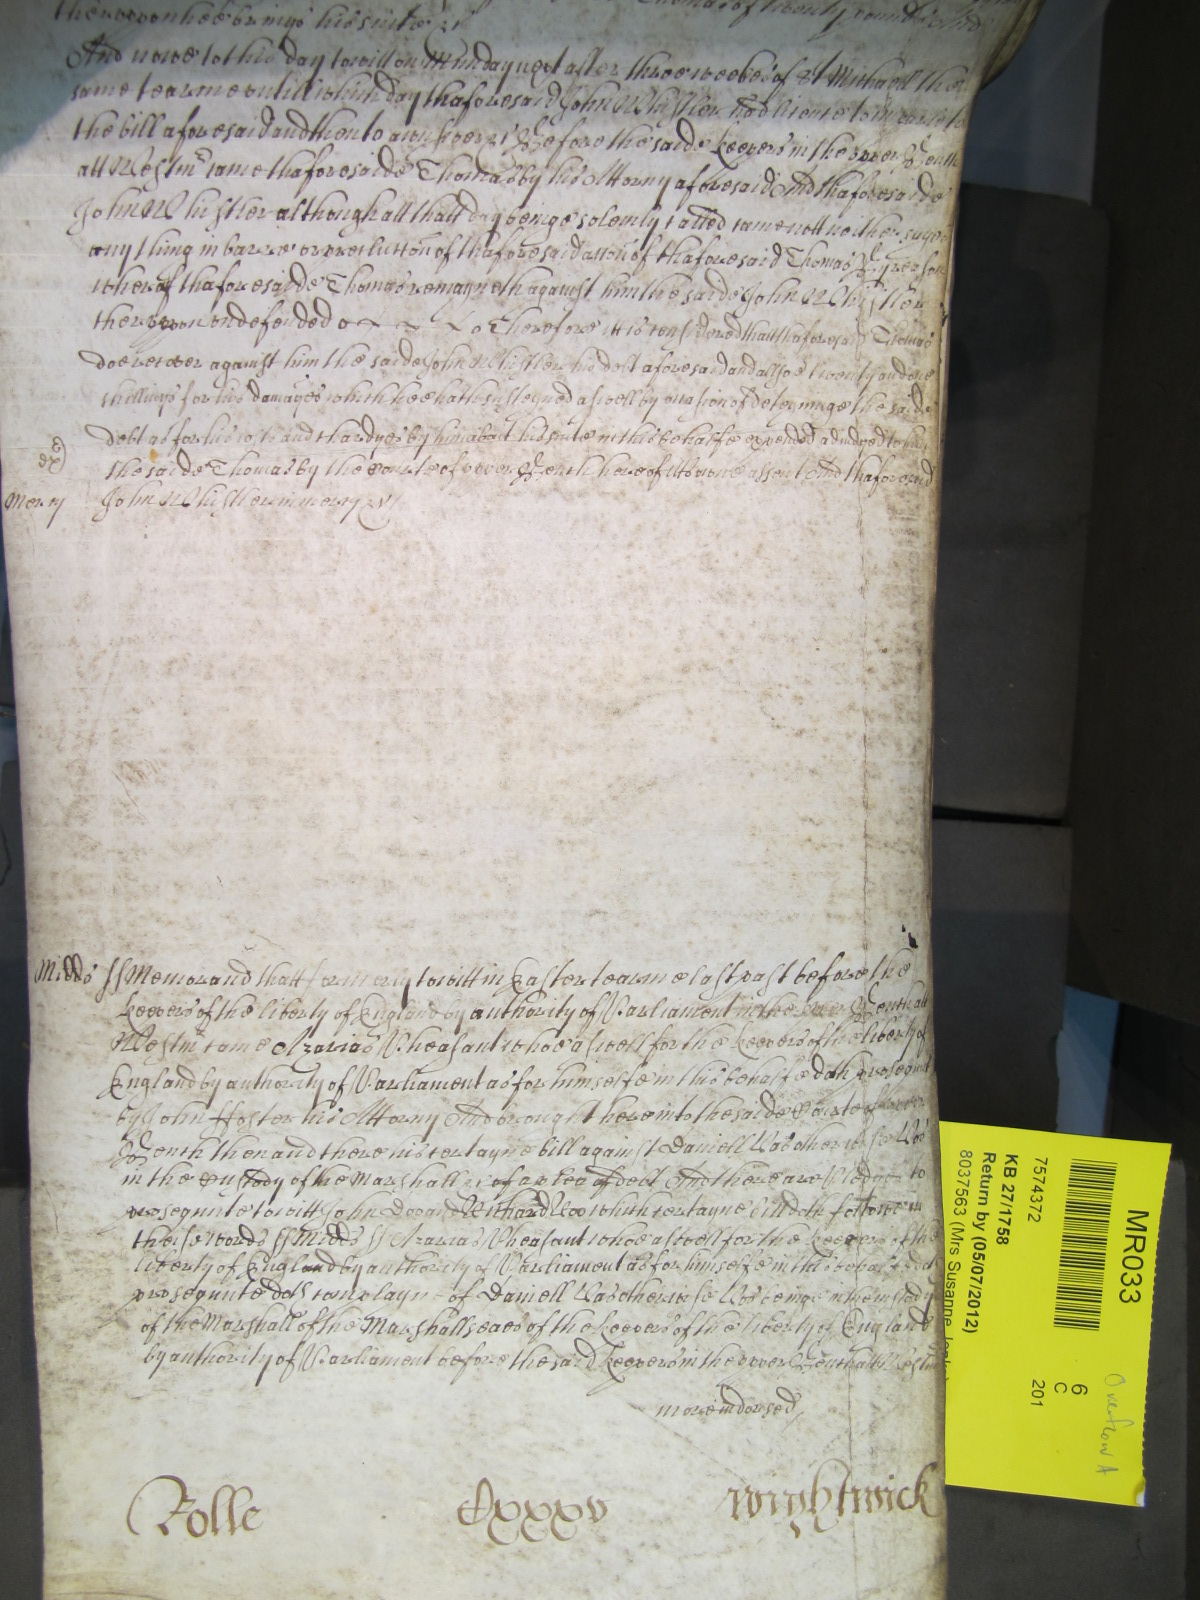 thereupon hee brings his suite &c
And nowe att this day to witt on Munday next after three weekes of St Michaell the
same tearme untill which day thaforesaid John Whistler had licence to imparle to
the bill aforesaid and then to answere &c Before the saide keepers in the upper Bench
att Westmr came thaforesaide Thomas by his Attorny aforesaid And thaforesaide
John Whistler although all thatt day beinge solemly called came nott neither sayes
any thing in barre or preclution of thaforesaid accon of thaforesaid Thomas Wherefore
thaforesaide Thomas remayneth against him the saide John Whistler
thereupon undefended Therefore itt is considered thatt thaforesaid Thomas
doe recover against him the saide John Whistler his debt aforesaid and allsoe twenty and one
shillings for his damages which hee hath susteyned aswell by occasion of deteyninge the saide
debt as for his costs and chardges by him about his suite in this behalfe expended adiudged to him
the saide Thomas by the Courte of upper Bench here of its owne assent And thaforesaid
Mercy John Whistler in mercy &c
Midds ss Memorand thatt formerly to witt in Easter tearme last past before the
keepers of the liberty of England by authority of Parliament in the upper Bench att
Westmr came Azarias Pheasant whoe aswell for the keepers of the liberty of
England by authority of Parliament as for himselfe in this behalfe doth prosequute
by John ffoster his Attorny And brought here into the saide Courte of upper
Bench then and there his certayne bill against Daniell
in the custody of the Marshall &c of a plea of debt And there are pledges to
prosequute to witt John Doo and Richard Roo which certayne bill doth followe in
these words ss Midds ss Azarias Pheasant whoe aswell for the keepers of the
liberty of England by authority of Parliament as for himselfe in this behalfe doth
prosequute doth complayne of Daniell beinge in the custody
of the Marshall of the Marshallseaes of the keepers of the liberty of England
by authority of Parliament before the said keepers in the upper Bench att Westmr
more indorsed
Rolle Cxxxv Wightwick
MR033
7574372
6
C
201
KB 27/1758
Return by (05/07/2012)
8037563 (Mrs Susanne
Overflow A